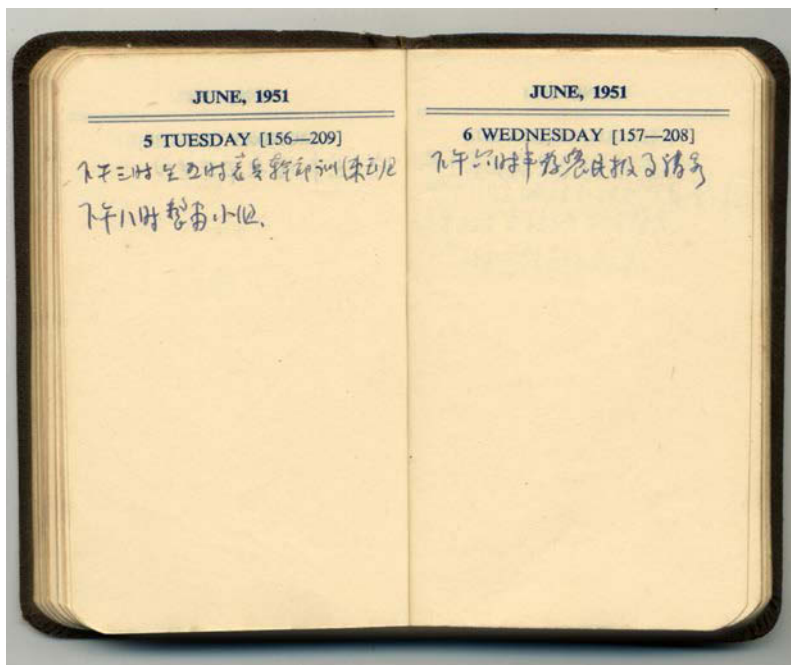 JUNE, 1951
5 TUESDAY [156—209]
下午三时至五时 幹部训
下午八时整 小组.
JUNE, 1951
6 WEDNESDAY [157—208]
下午六时半 农民报 请客